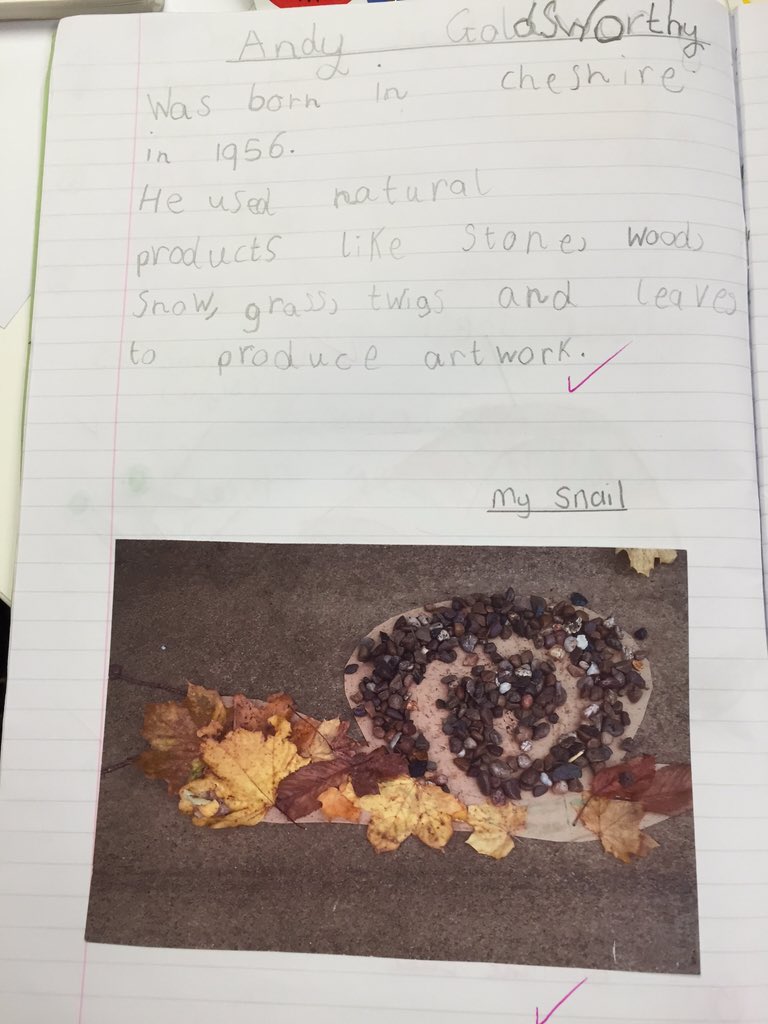 Andy Goldsworthy
Was born in cheshire.
in 1956.
He used natural
products like stone, wood,
snow, grass, twigs and leaves
to produce artwork.
My Snail